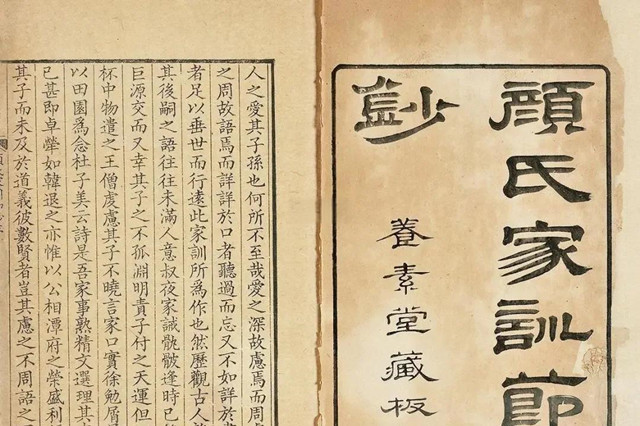 顏氏家訓節
鈔
養素堂藏板
人之愛其子孫也何所不至哉愛之深故慮焉而周
之周故語焉而詳詳於口者聽過而忘又不如詳於
者足以垂世而行遠此家訓所爲作也然歷觀古人
其後嗣之語往往未滿人意叔夜家誡骩骳逢時已
巨源交而又幸其子之不孤淵明責子付之天運但
杯中物遣之王僧虔慮其子不曉言家口實徐勉屑
以田園爲念杜子美云詩是吾家事熟精文選理其
已甚即卓犖如韓退之亦惟以公相潭府之榮盛利
其子而未及於道義彼數賢者豈其慮之不周語之